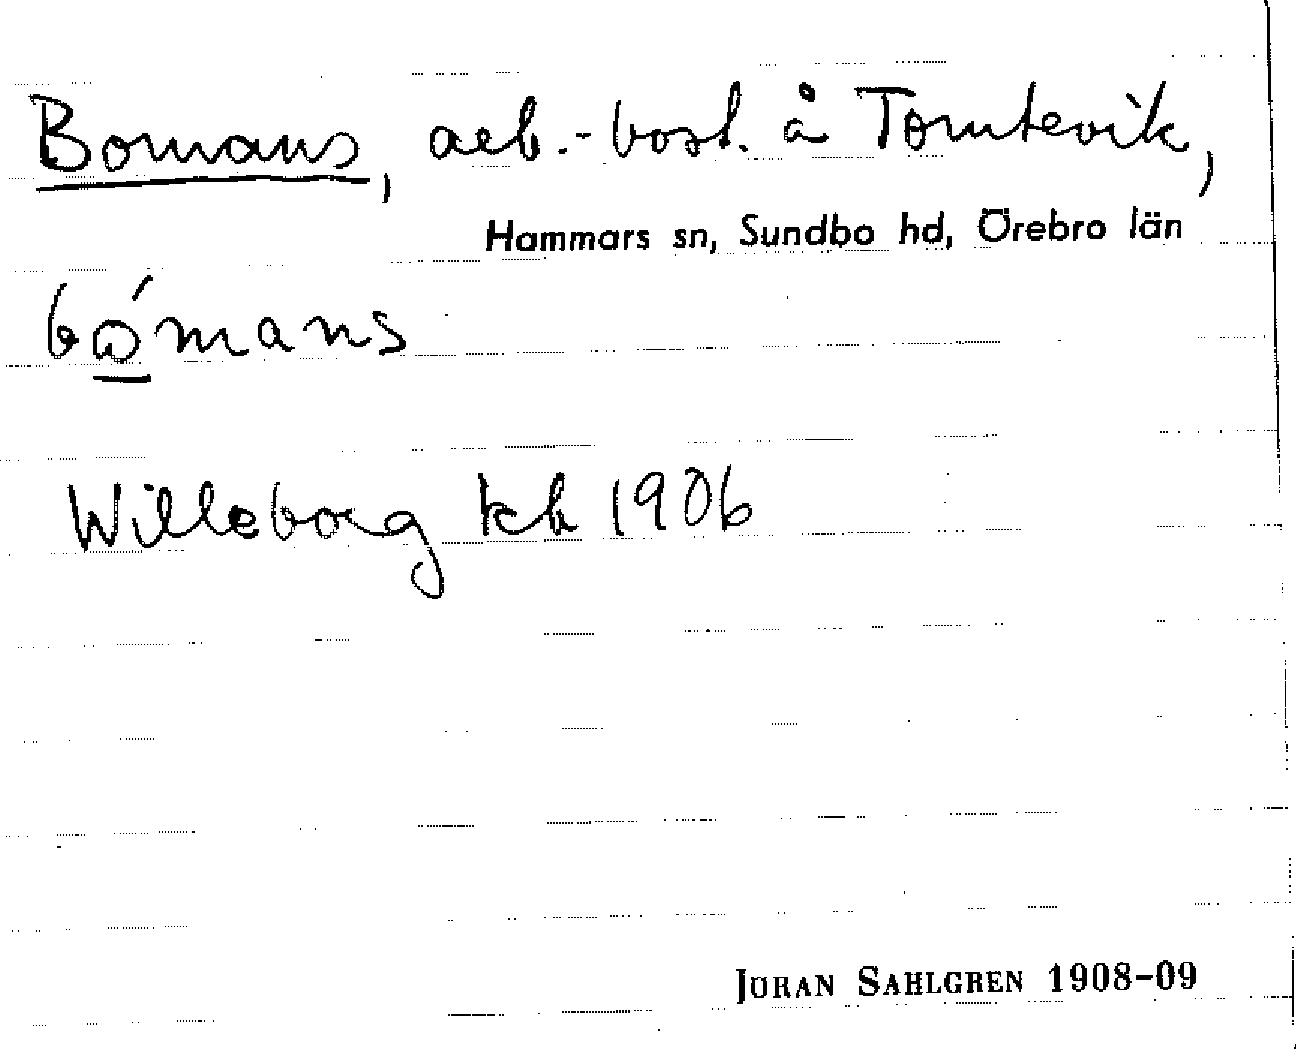 Bomans, arb.-bost. å Tomtevik,
Hammars sn, Sundbo hd, Örebro län
bo̲´mans
Willeborg kh 1906
JÖRAN SAHLGREN 1908-09